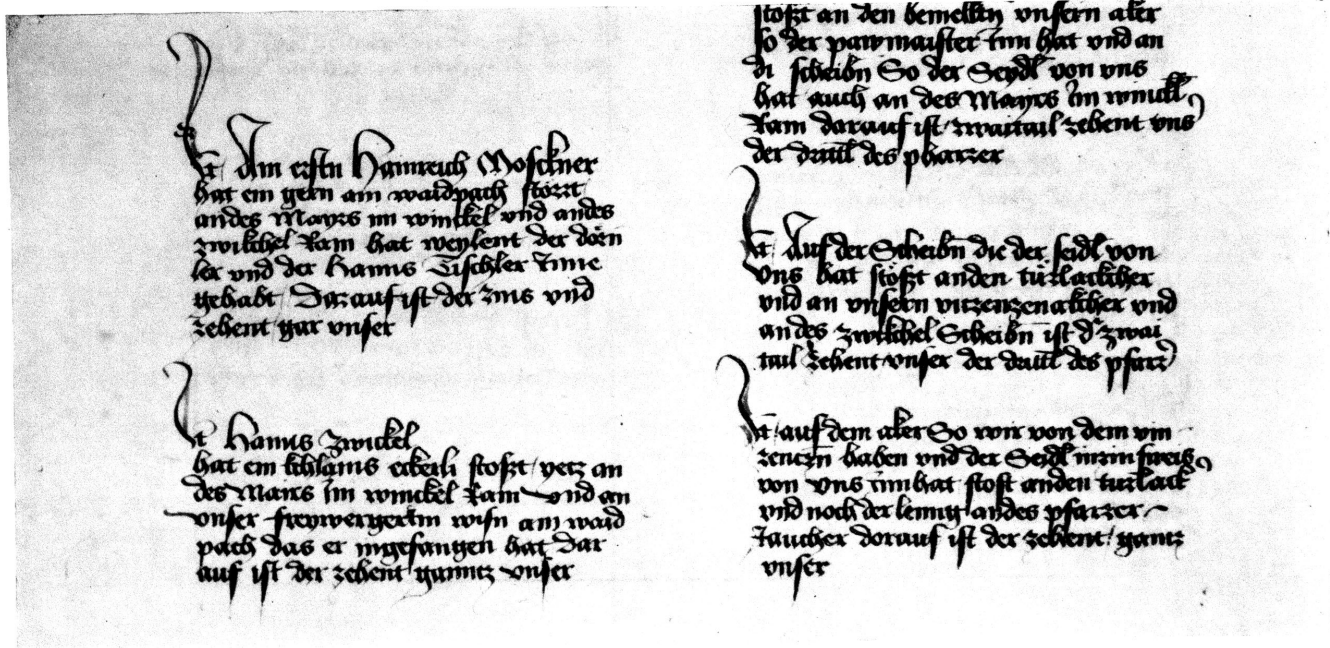 It Am ersten Hainreich Mosckner
hat ein gern am waidpach stozzt
an des Mayrs im winckel vnd an des
zwikchel Ram hat weylent der dorn
ler vnd der Hanns Tischler Inne
gehabt Darauf ist der zins vnd
zehent gar vnser
It Hanns Zwickel
hat ein khlains eckerli stosst yetz an
des Mairs Im winckel Ram vnd an
vnser wisn am waid
pach das er ingefangen hat Dar
auf ist der zehent ganntz vnser
stosst an den bemelltn vnsern aker
so der pawmaister Inn hat vnd an
di scheibn So der Seydl von vns
hat auch an des Mayrs Im winckl
Ram darauf ist zwaitail zehent vns
der drittl des pharrer
It Auf der Scheibn die der seidl von
vns hat stosst an den turlackher
vnd an vnsern vitzenzenakcher vnd
an des zwikchel Scheibn ist d' zwai
tail zehent vnser der drittl des pfarr
It auf dem aker So wir von dem vin
zenczn haben vnd der Seidl
von vns innhat stost an den turlack
vnd noch der lenng an des pfarrer
Jaucher dorauf ist der zehent gantz
vnser